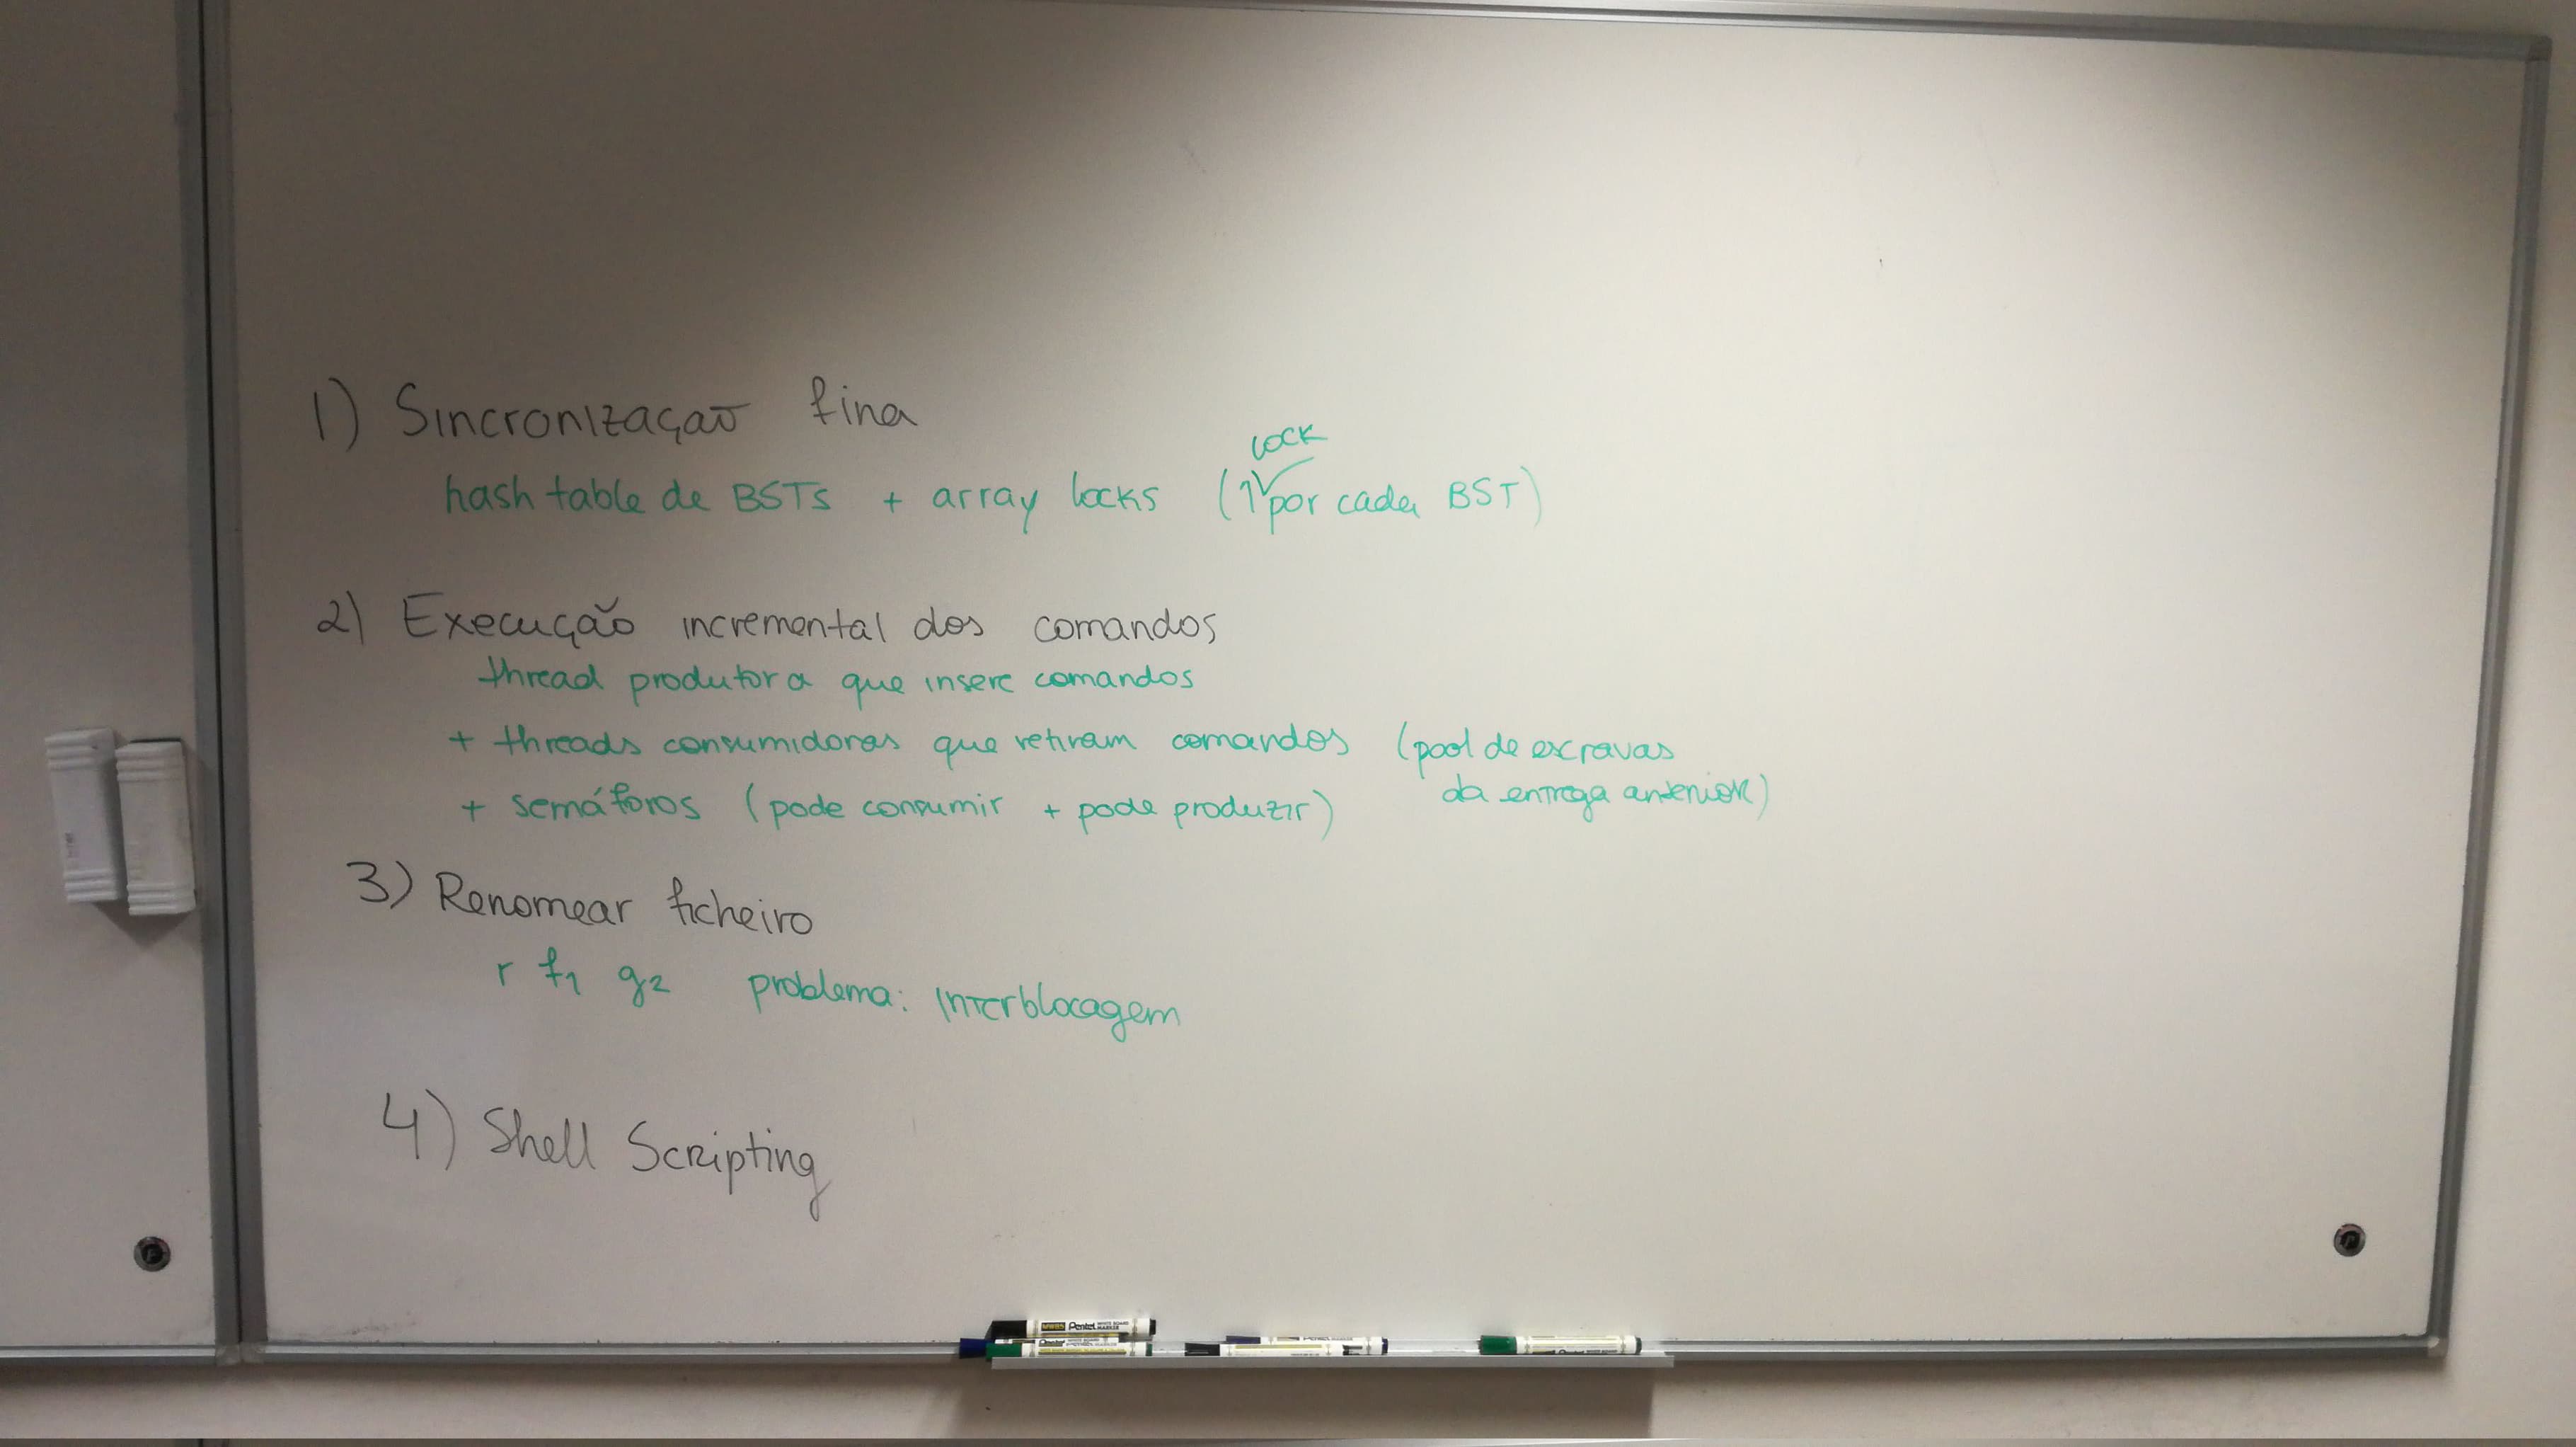 1) Sincronização fina
hash table de BSTs + array locks (1 lock por cada BST)
2) Execução incremental dos comandos
thread produtora que insere comandos
+ threads consumidoras que retiram comandos (pool de escravas
da entrega anterior)
+ semáforos (pode consumir + pode produzir)
3) Renomear ficheiro
r f1 g2 problema: Interblocagem
4) Shell Scripting
Pentel WHITE BOARD MARKER